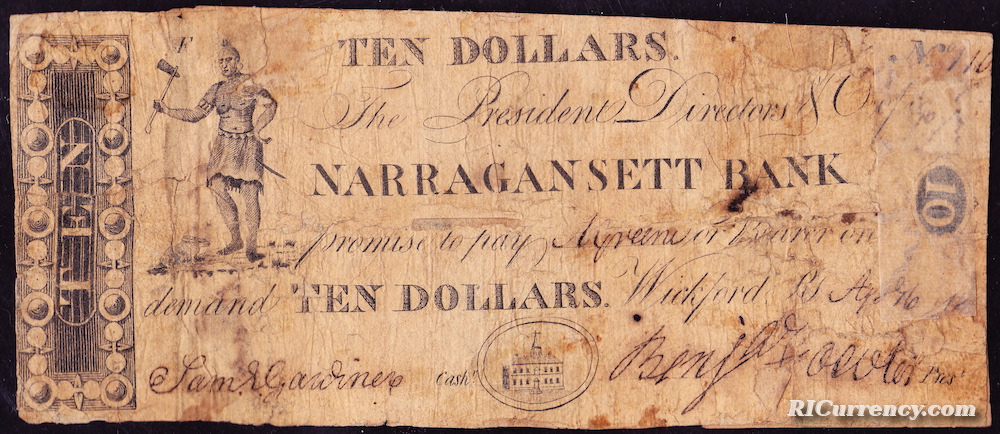 TEN
F
TEN DOLLARS.
No
The President Directors & Co of
NARRAGANSETT BANK
10
promise to pay A Greene or Bearer on
demand TEN DOLLARS. Wickford
Saml Gardiner Cashr. Benjn Fowler Prest
RICurrency.com